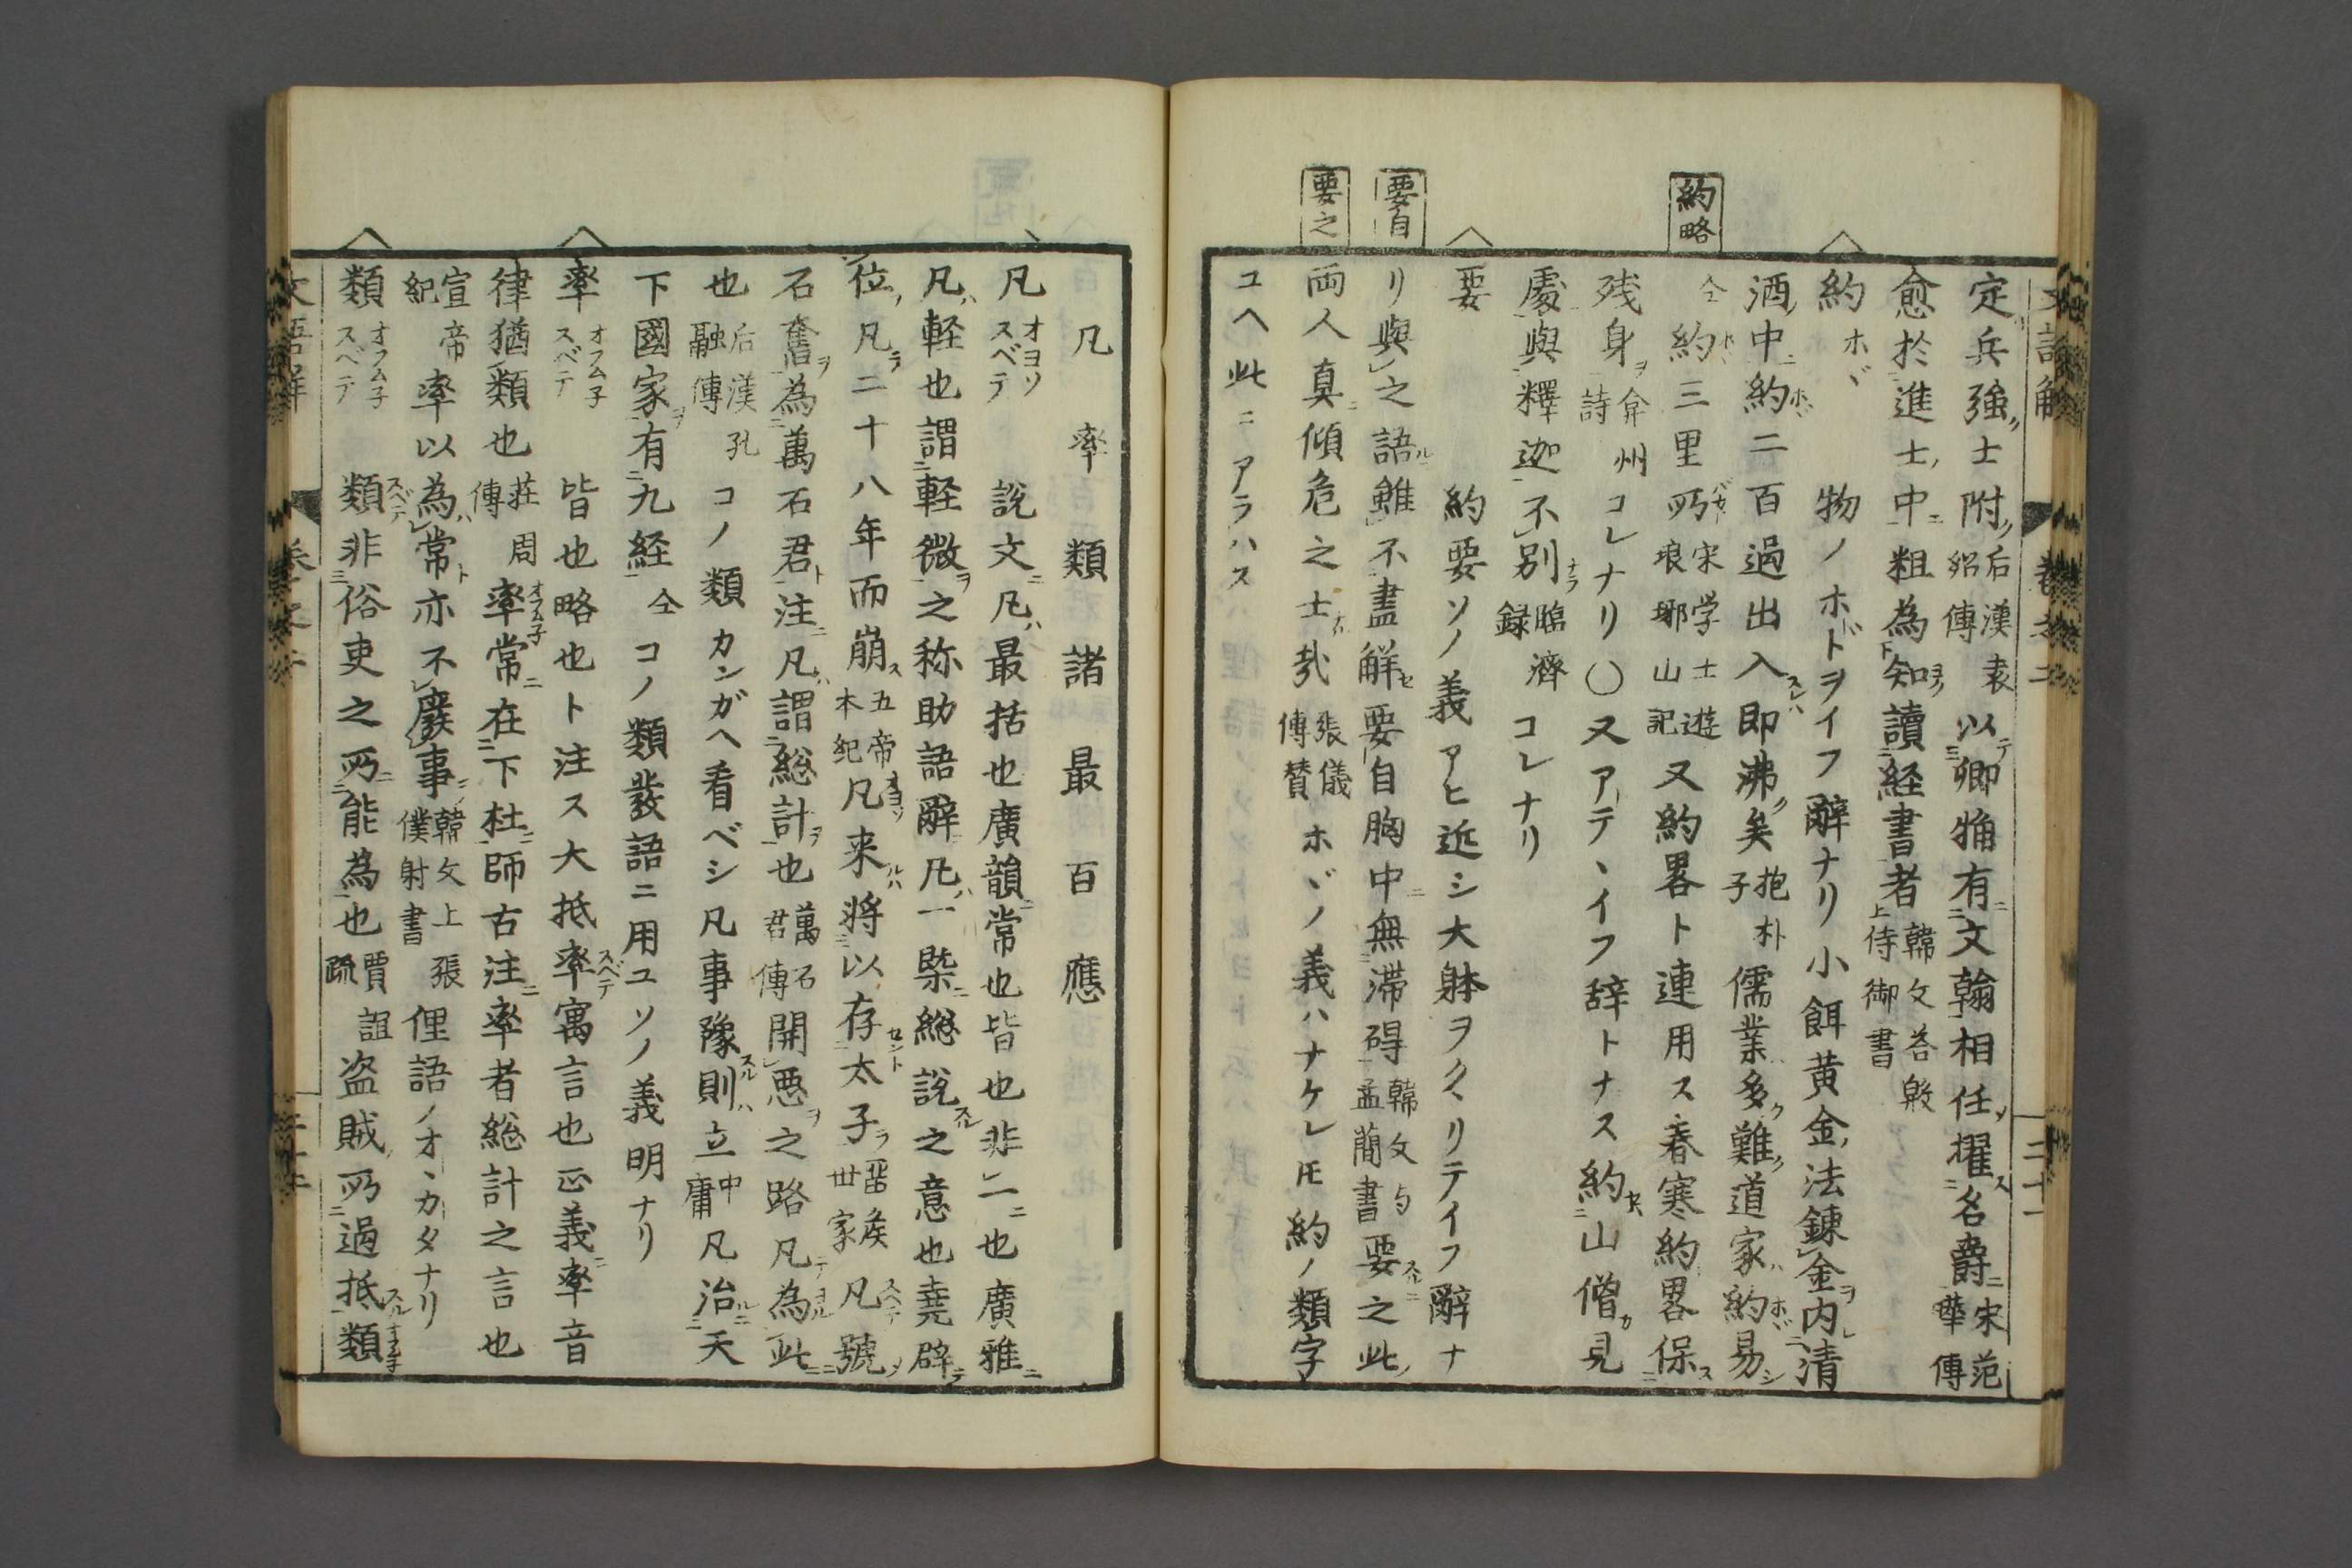 約略
要自
要之
定兵強士附后漢袁紹傳以卿痛有文翰相任擢名爵宋范曄傳
愈於進士中粗為知讀経書者韓文答殷侍御書
約ホヾ物ノホドヲイフ辭ナリ小餌黄金法錬金内清
酒中約二百過出入即沸矣抱朴子儒業多難道家約易
仝約三里所宋学士遊琅琊山記又約畧ト連用ス春寒約畧保
残身弇州詩コレナリ〇又アテヽイフ辞トナス約山僧見
處與釋迦不別臨濟録コレナリ
要約要ソノ義アヒ近シ大躰ヲクヽリテイフ辭ナ
リ與之語雖不盡解要自胸中無滞碍韓文与孟簡書要之此
両人真傾危之士哉張儀傳賛ホヾノ義ハナケレ𪜈約ノ類字
ユヘ此ニアラハス
凡率類諸最百應
凡オヨソスベテ説文凡最括也廣韻常也皆也非一也廣雅
凡軽也謂軽微之称助語辭凡一槩総説之意也堯辟
位凡二十八年而崩五帝本紀凡来將以存太子畱矦世家凡號
石奮為萬石君注凡謂総計也萬石君傳開悪之路凡為此
也后漢孔融傳コノ類カンガヘ看ベシ凡事豫則立中庸凡治天
下國家有九経仝コノ類發語ニ用ユソノ義明ナリ
率オフム子スベテ皆也略也ト注ス大抵率寓言也正義率音
律猶類也荘周傳率常在下杜師古注率者総計之言也
宣帝紀率以為常亦不廢事韓文上張僕射書俚語ノオヽカタナリ
類オフム子スベテ類非俗吏之所能為也賈誼疏盗賊所過抵類